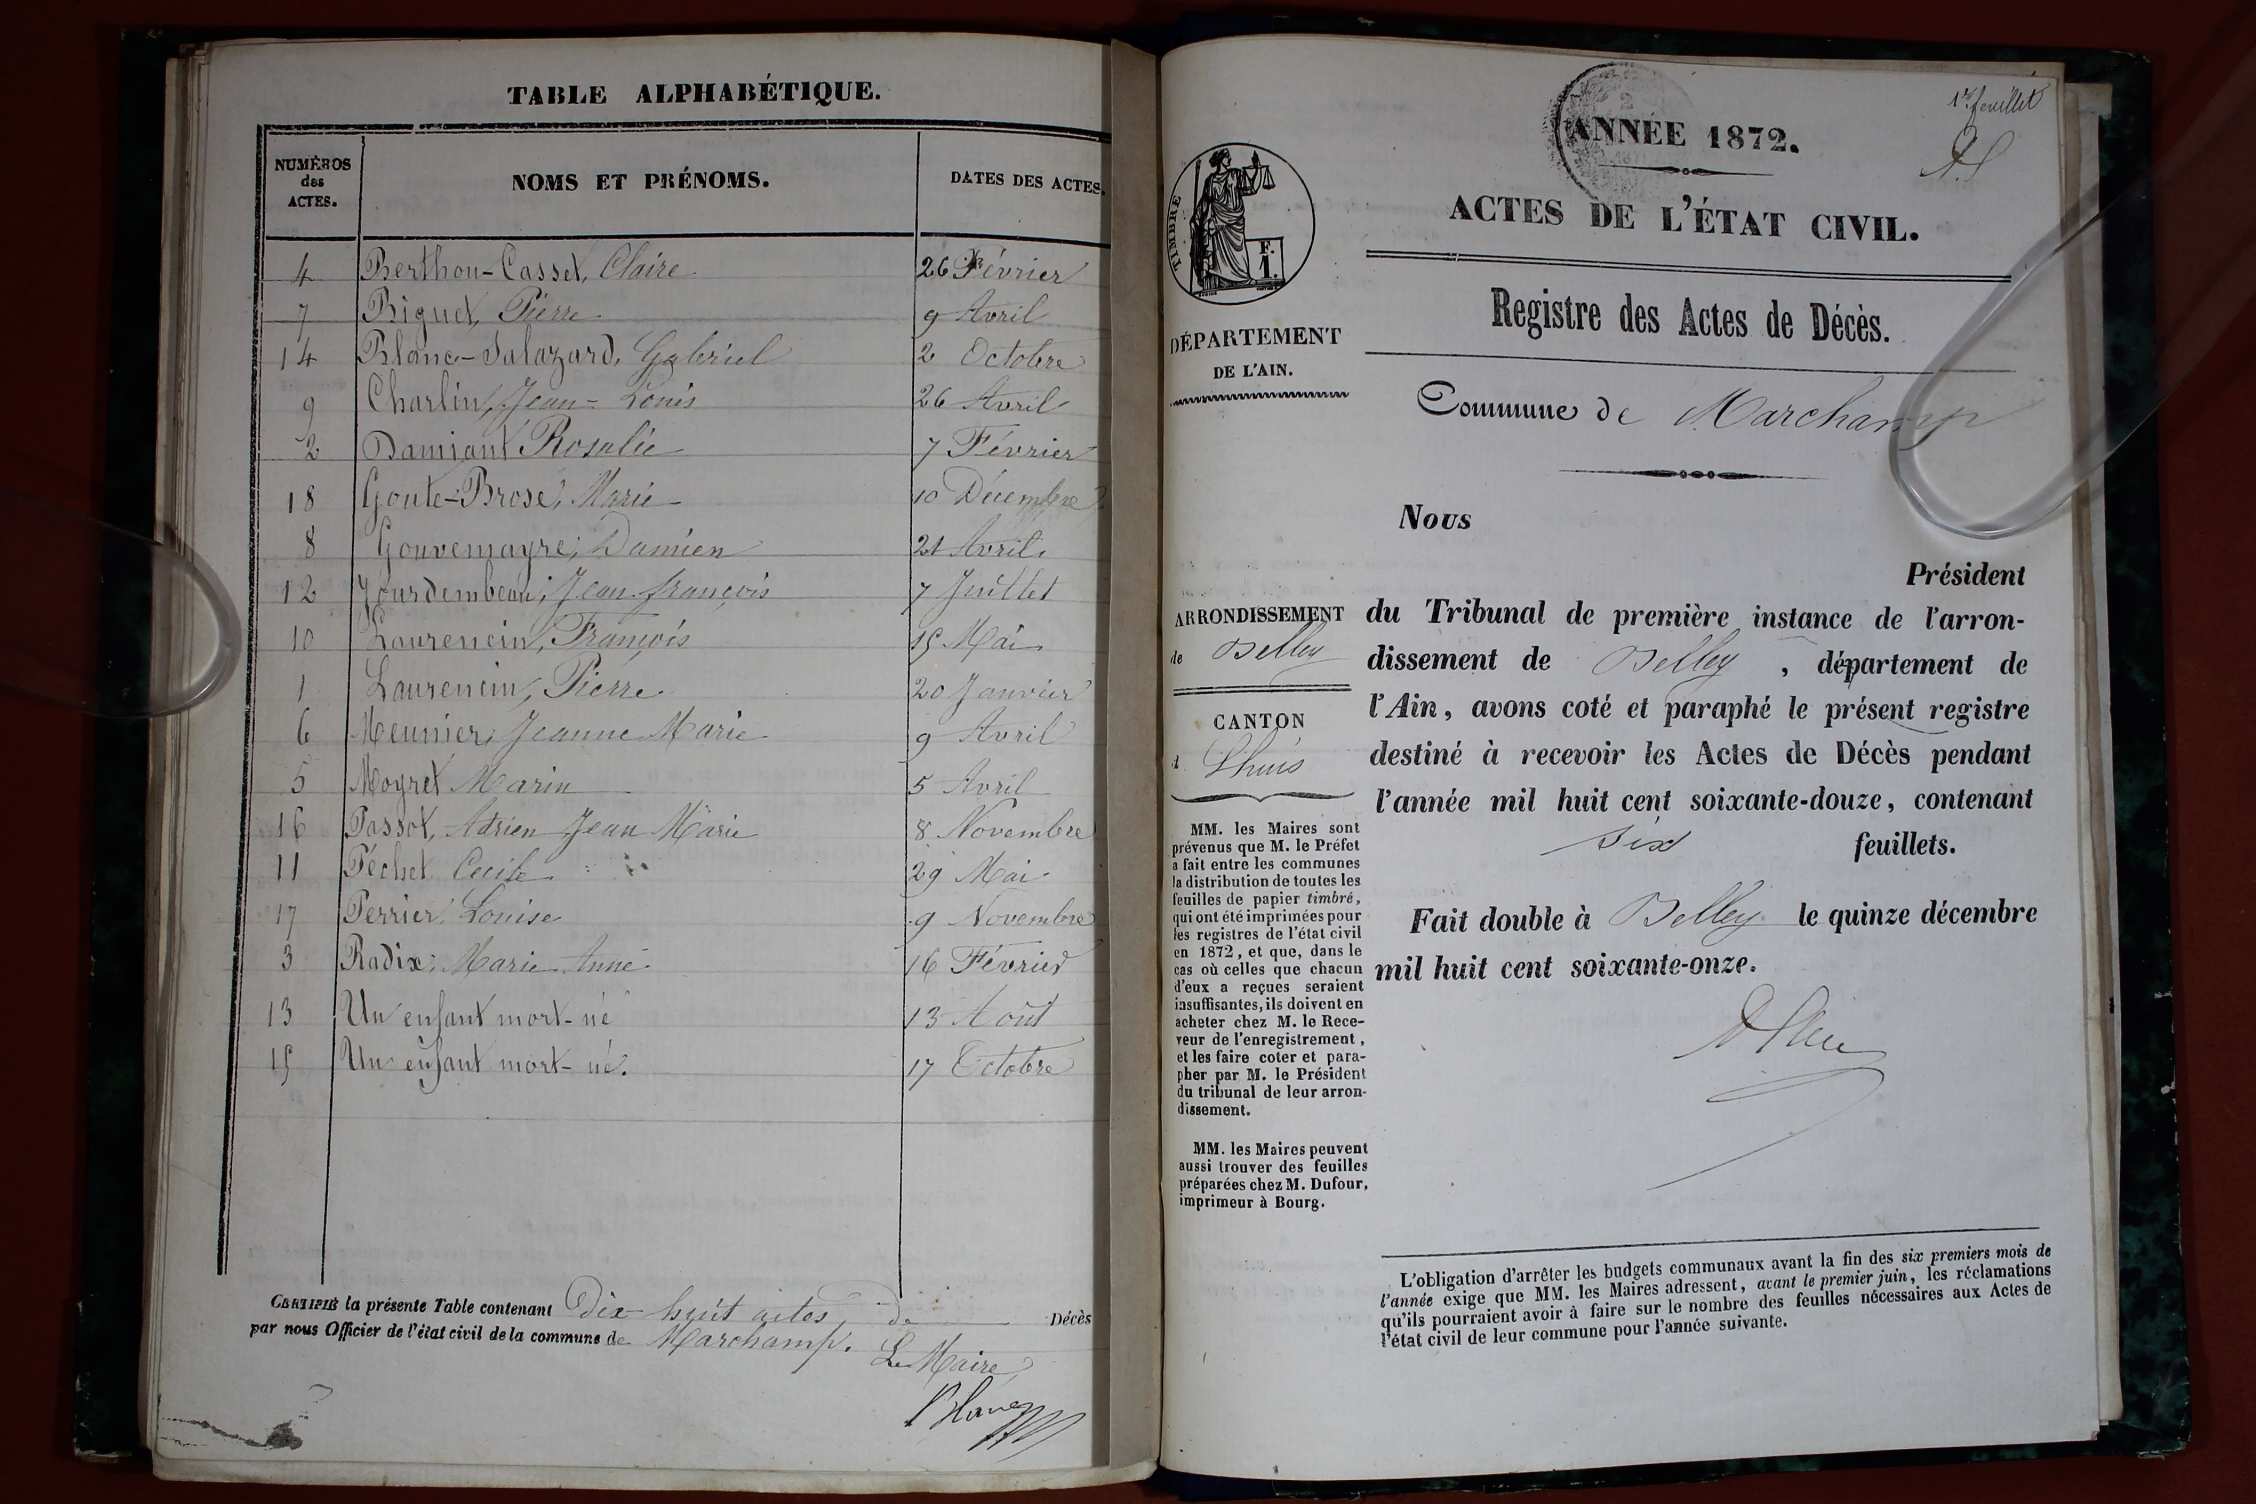 TABLE ALPHABÉTIQUE.
NUMÉROS
des
ACTES.
NOMS ET PRÉNOMS.
DATES DES ACTES.
4 Berthon-Casset, Claire 26 Février
7 Biguet, Pierre 9 Avril
14 Blanc-Jalazard, Gabriel 2 Octobre
9 Charlin, Jean-Louis 26 Avril
2 Damians Rosalie 7 Février
18 Goute-Brose, Marie 10 Décembre
8 Gouvemayre, Damien 21 Avril
12 Jourdembeau, Jean françois 7 Juillet
10 Laurencin, François 15 Mai
1 Laurencin, Pierre 20 Janvier
6 Meunier, Jeanne Marie 9 Avril
5 Moyret Marin 5 Avril
16 Passot, Adrien Jean Marie 8 Novembre
11 Péchet Cecile 29 Mai
17 Perrier Louise 9 Novembre
3 Radix Marie Anne 16 Février
13 Un enfant mort-né 13 Août
15 Un enfant mort-né. 17 Octobre
CERTIFIÉ la présente Table contenant Dix huit actes de Décès
par nous Officier de l'état civil de la commune de Marchamp.
Le Maire
Blanc
1er feuillet
ANNÉE 1872.
ACTES DE L'ÉTAT CIVIL.
TIMBRE
F.
1.
Registre des Actes de Décès.
DÉPARTEMENT
DE L'AIN.
Commune de Marchamp
Nous
Président
ARRONDISSEMENT
de Belley
CANTON
d Lhuis
du Tribunal de première instance de l'arron-
dissement de Belley, département de
l'Ain, avons coté et paraphé le présent registre
destiné à recevoir les Actes de Décès pendant
l'année mil huit cent soixante-douze, contenant
six feuillets.
Fait double à Belley le quinze décembre
mil huit cent soixante-onze.
MM. les Maires sont
prévenus que M. le Préfet
a fait entre les communes
la distribution de toutes les
feuilles de papier timbré,
qui ont été imprimées pour
les registres de l'état civil
en 1872, et que, dans le
cas où celles que chacun
d'eux a reçues seraient
insuffisantes, ils doivent en
acheter chez M. le Rece-
veur de l'enregistrement,
et les faire coter et para-
pher par M. le Président
du tribunal de leur arron-
dissement.
MM. les Maires peuvent
aussi trouver des feuilles
préparées chez M. Dufour,
imprimeur à Bourg.
L'obligation d'arrêter les budgets communaux avant la fin des six premiers mois de
l'année exige que MM. les Maires adressent, avant le premier juin, les réclamations
qu'ils pourraient avoir à faire sur le nombre des feuilles nécessaires aux Actes de
l'état civil de leur commune pour l'année suivante.